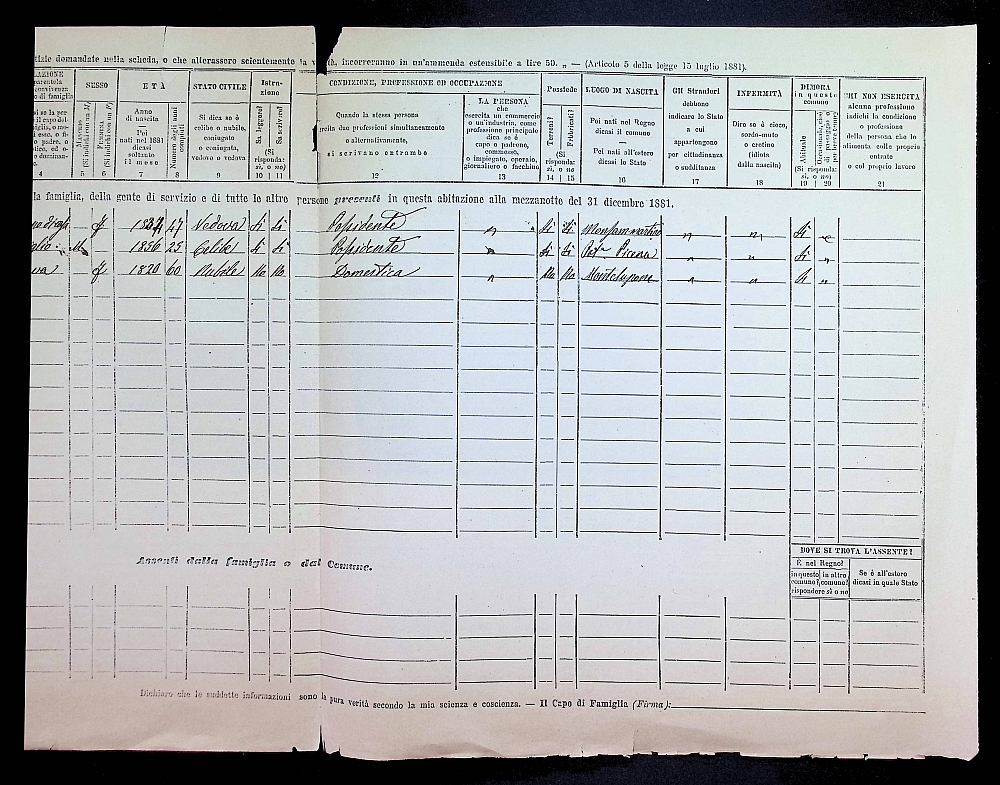 tizie domandate nella scheda, o che alterassero scientemente la v tà, incorreranno in un'ammenda estensibile a lire 50. „ — (Articolo 5 della legge 15 luglio 1881).
SESSO
Maschio (Si indichi con un M)
Femmina (Si indichi con un F)
5 6
ETÀ
Anno di nascita
—
Pei nati nel 1881 dicasi soltanto il mese
Numero degli anni compiuti
7 8
STATO CIVILE
Si dica se è celibe o nubile, coniugato o coniugata, vedovo o vedova
9
Istruzione
Sa leggere?
Sa scrivere?
(Si risponda: sì, o no)
10 11
CONDIZIONE, PROFESSIONE OD OCCUPAZIONE
Quando la stessa persona
rcita due professioni simultaneamente
o alternativamente,
si scrivano entrambe
12
LA PERSONA
che
esercita un commercio
o un'industria, come
professione principale
dica se è
capo o padrone,
commesso,
o impiegato, operaio,
giornaliero o facchino
13
Possiede
Terreni?
Fabbricati?
(Si risponda: sì, o no
14 15
LUOGO DI NASCITA
Pei nati nel Regno
dicasi il comune
—
Pei nati all'estero
dicasi lo Stato
16
Gli Stranieri
debbono
indicare lo Stato
a cui
appartengono
per cittadinanza
o sudditanza
17
INFERMITÀ
Dire se è cieco,
sordo-muto
o cretino
(idiota
dalla nascita)
18
DIMORA
in questo
comune
Abituale
(Si risponda: sì, o no)
19 20
CHI NON ESERCITA
alcuna professione
indichi la condizione
o professione
della persona che lo
alimenta colle proprie
entrate
o col proprio lavoro
21
la famiglia, della gente di servizio e di tutte le altre persone presenti in questa abitazione alla mezzanotte del 31 dicembre 1881.
f 1834 47 Vedova Si Si Possidente n Si Si Monsammartino n n Si
M 1856 25 Celibe Si Si Possidente n Si Si Pot.ª Picena n n Si n
f 1820 60 Nubile No No Domestica n No No Montelupone n n Si n
Assenti dalla famiglia o dal Comune.
DOVE SI TROVA L'ASSENTE?
È nel Regno?
in questo comune?
in altro comune?
rispondere sì o no
Se è all'estero
dicasi in quale Stato
Dichiaro che le suddette informazioni sono la pura verità secondo la mia scienza e coscienza. — Il Capo di Famiglia (Firma):